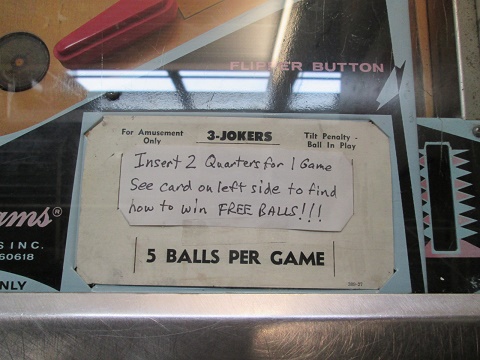 FLIPPER BUTTON
For Amusement Only
3-JOKERS
Tilt Penalty - Ball In Play
Insert 2 Quarters for 1 Game
See card on left side to find
how to win FREE BALLS!!!
5 BALLS PER GAME
ams®
S INC.
60618
NLY